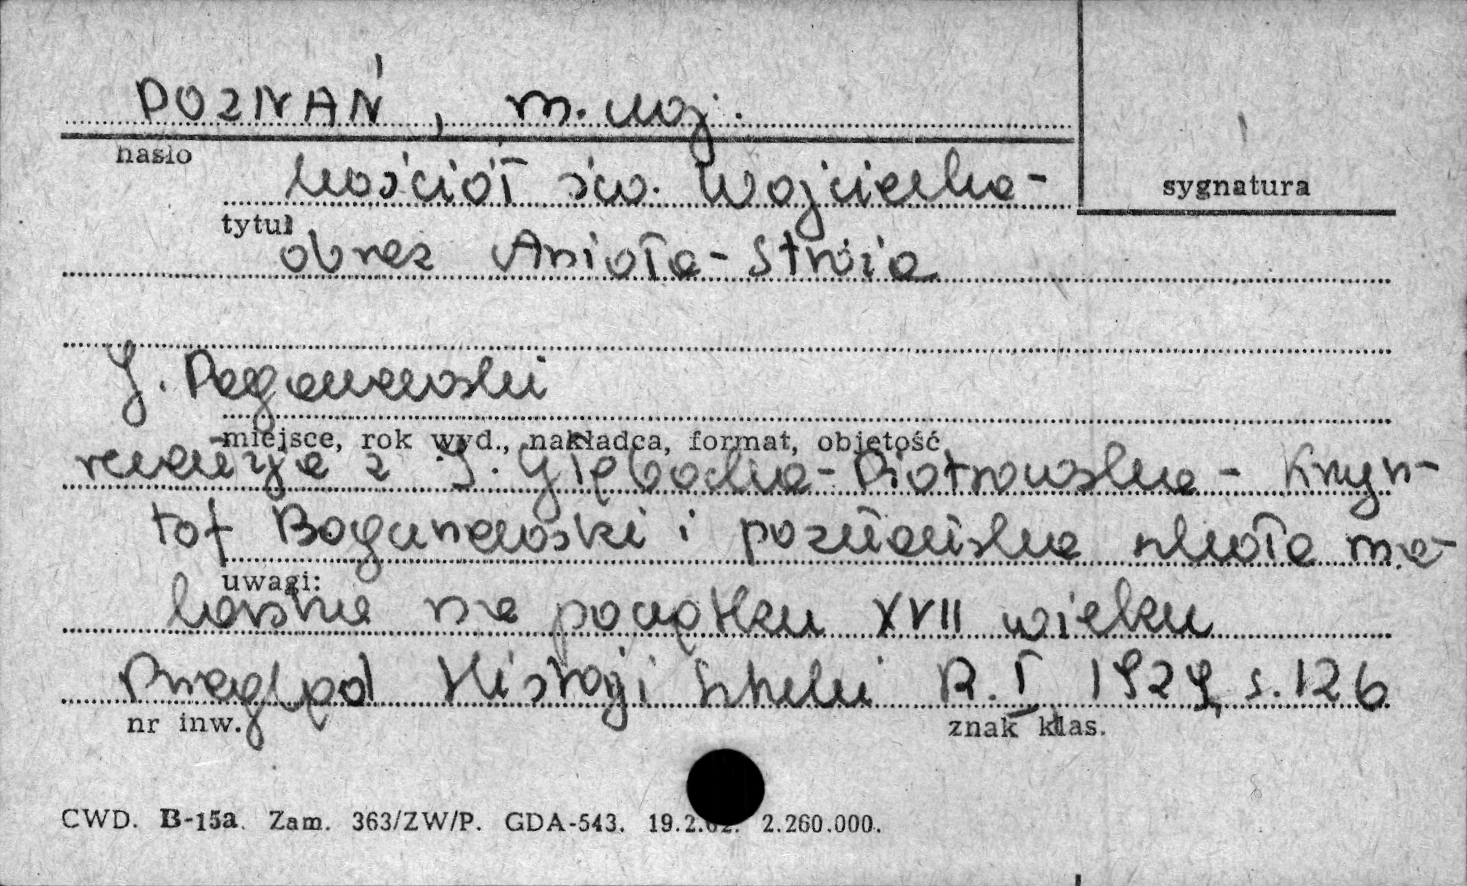 POZNAŃ, m. woj.
hasło
kościół św. Wojciecha-
sygnatura
tytuł
obraz Anioła-Stróża
J. Pagaczewski
miejsce, rok wyd., nakładca, format, objętość
recenzja z J. Głębocka-Piotrowska - Krzysz-
tof Boguszewski i poznańska szkoła ma-
uwagi:
larska na początku XVII wieku
Przegląd Historji Sztuki R.I 1929, s.126
nr inw.
znak klas.
CWD. B-15a. Zam. 363/ZW/P. GDA-543. 19.2.62. 2.260.000.